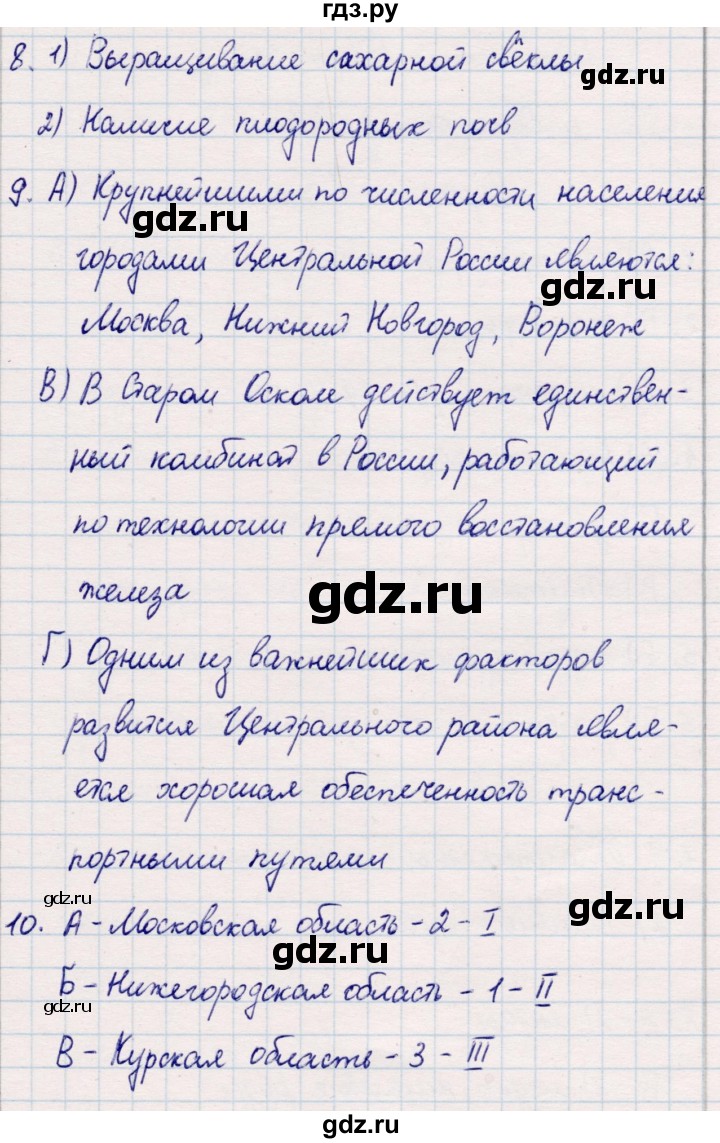 гдз.ру
8. 1) Выращивание сахарной свёклы
gdz.ru
2) Наличие плодородных почв
9. А) Крупнейшими по численности населения
gdz.ru
городами Центральной России являются:
gdz.ru
Москва, Нижний Новгород, Воронеж
В) В Старом Осколе действует единствен-
ный комбинат в России, работающий
по технологии прямого восстановления
железа
gdz.ru
Г) Одним из важнейших факторов
развития Центрального района явля-
ется хорошая обеспеченность транс-
портными путями
gdz.ru
gdz.ru
10. А - Московская область - 2 - I
gdz.ru
Б - Нижегородская область - 1 - II
gdz.ru
В - Курская область - 3 - III
gdz.ru
gdz.ru